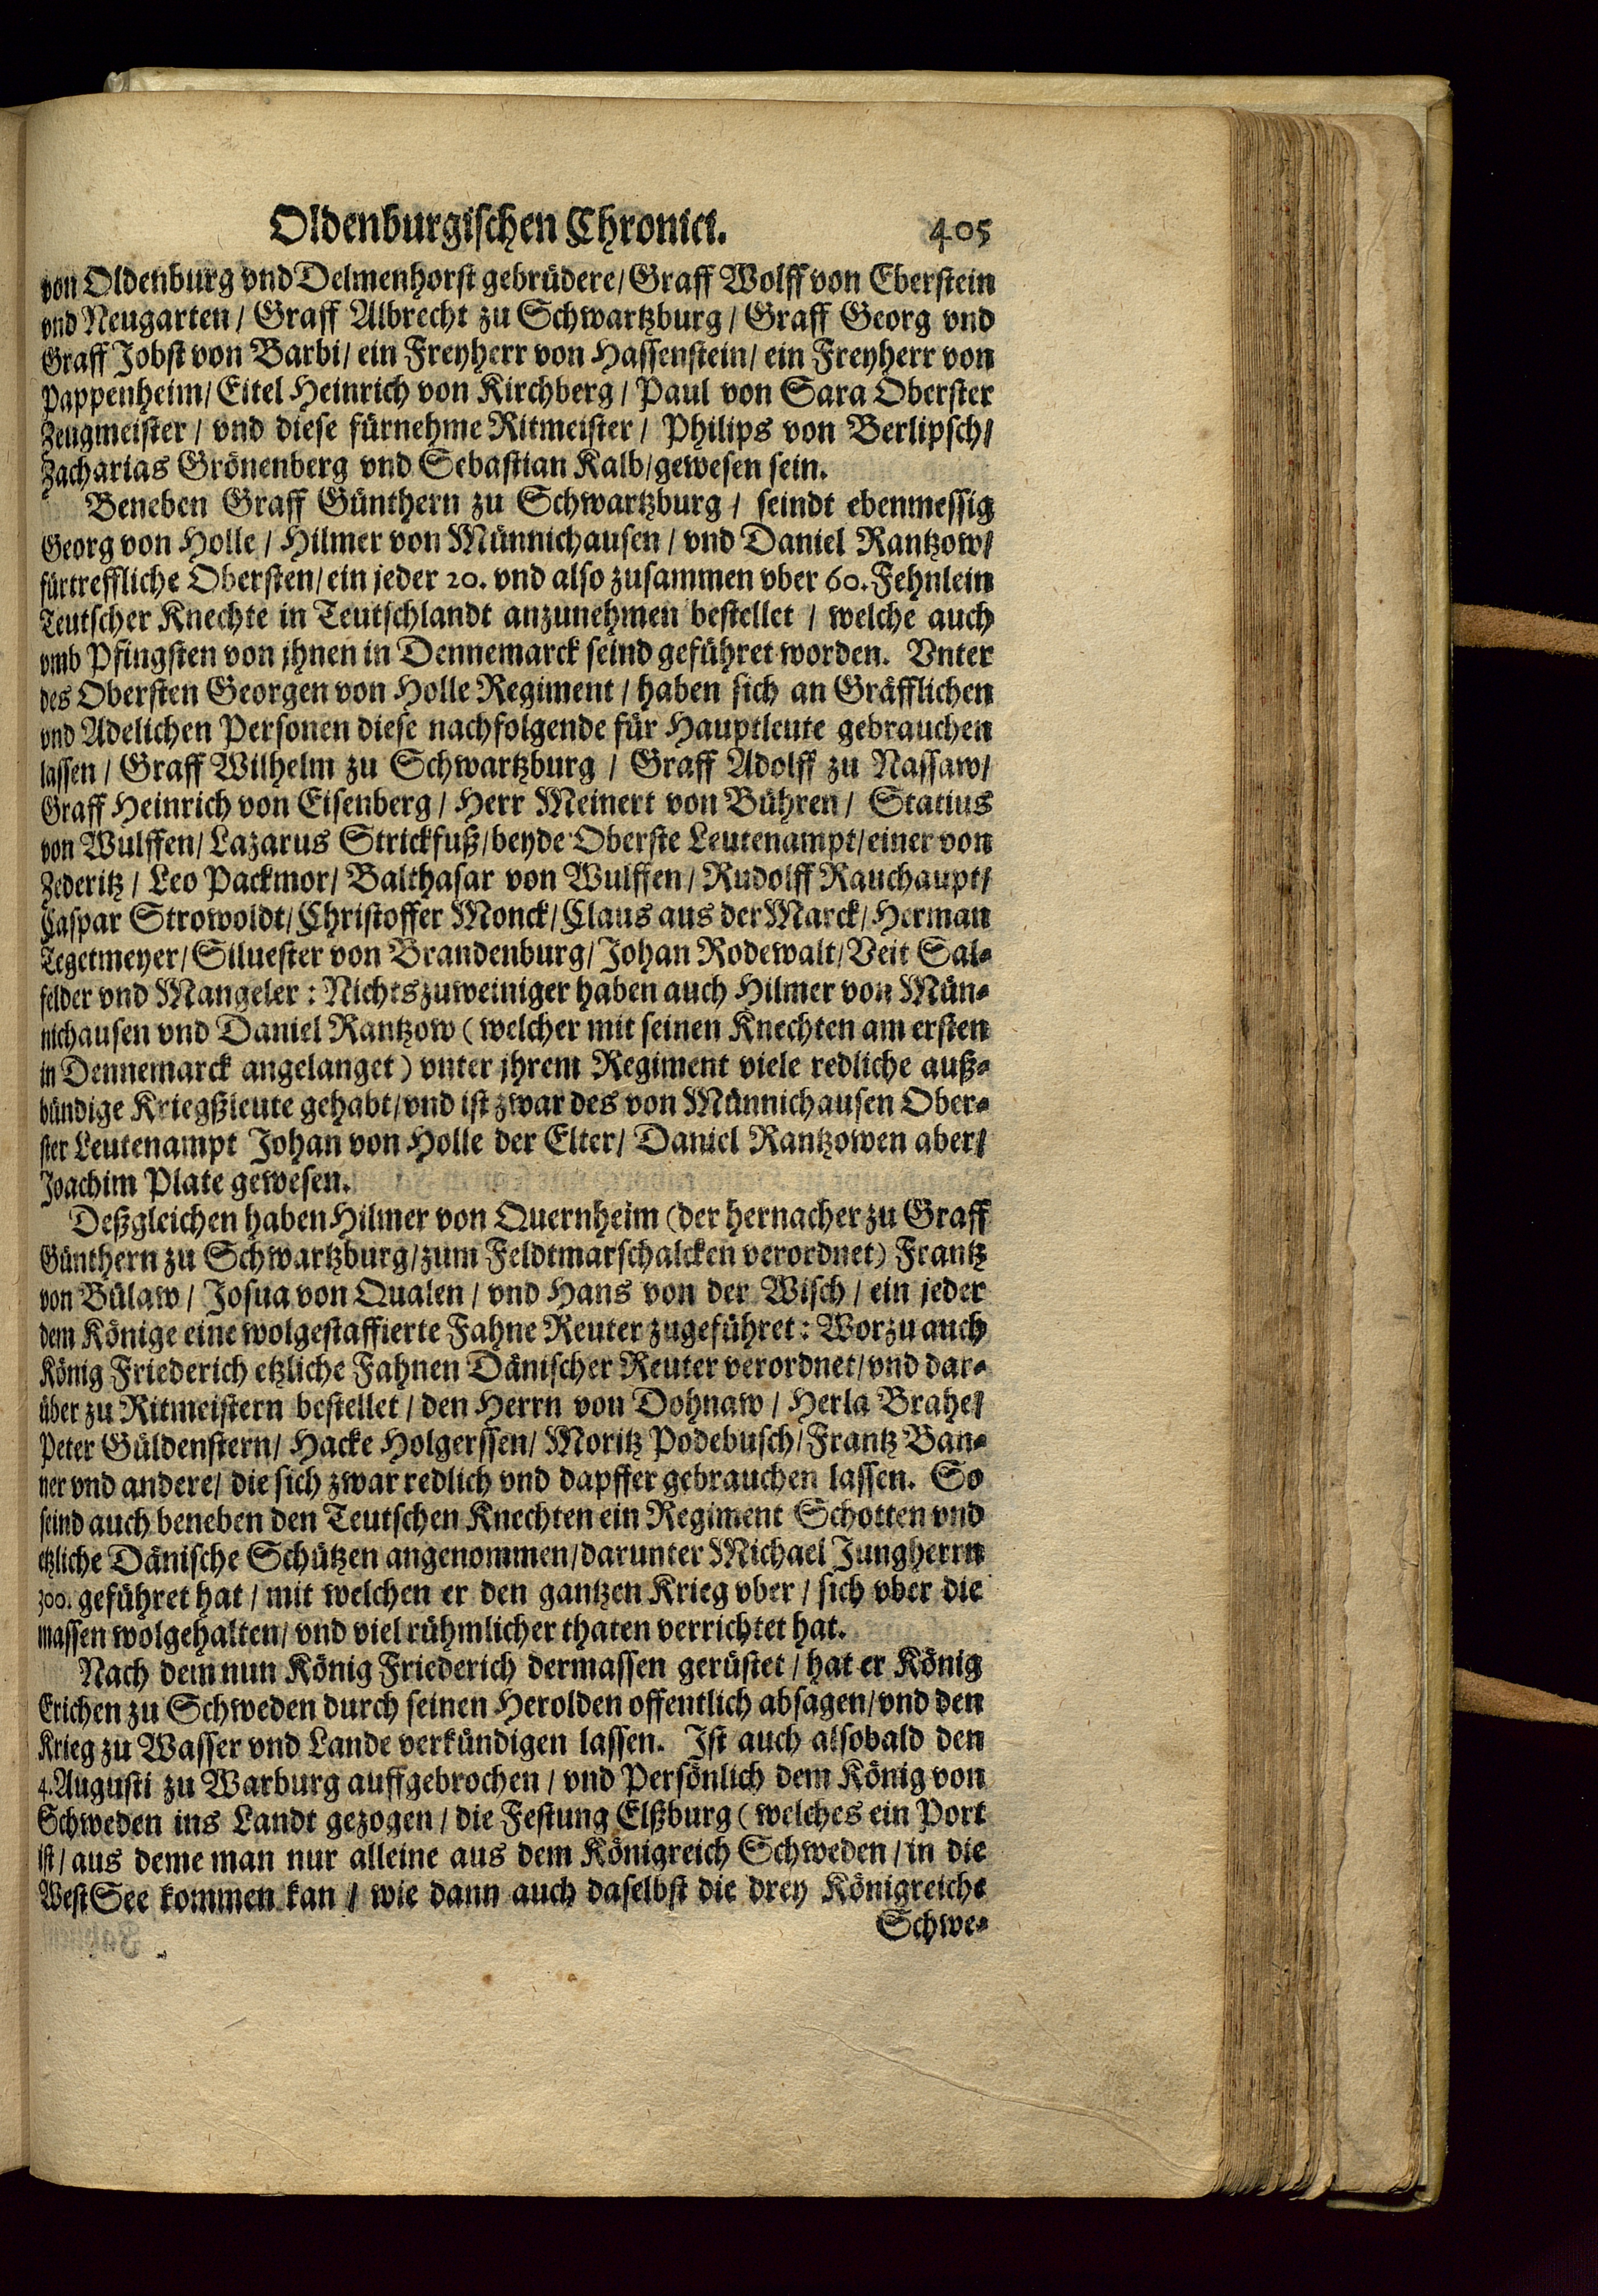 Oldenburgischen Chronici. 405
von Oldenburg vnd Delmenhorst gebrüdere/ Graff Wolff von Eberstein
vnd Neugarten / Graff Albrecht zu Schwartzburg / Graff Georg vnd
Graff Jobst von Barbi/ ein Freyherr von Hassenstein/ ein Freyherr von
Pappenheim/ Eitel Heinrich von Kirchberg / Paul von Sara Oberster
Zeugmeister / vnd diese fürnehme Ritmeister / Philips von Berlipsch/
Zacharias Grönenberg vnd Sebastian Kalb/ gewesen sein.
Beneben Graff Günthern zu Schwartzburg / seindt ebenmessig
Georg von Holle / Hilmer von Münnichausen / vnd Daniel Rantzow/
fürtreffliche Obersten/ ein jeder 20. vnd also zusammen vber 60. Fehnlein
Teutscher Knechte in Teutschlandt anzunehmen bestellet / welche auch
vmb Pfingsten von jhnen in Dennemarck seind geführet worden. Vnter
des Obersten Georgen von Holle Regiment / haben sich an Gräfflichen
vnd Adelichen Personen diese nachfolgende für Hauptleute gebrauchen
lassen / Graff Wilhelm zu Schwartzburg / Graff Adolff zu Nassaw/
Graff Heinrich von Eisenberg / Herr Meinert von Bühren / Statius
von Wulffen/ Lazarus Strickfuß/ beyde Oberste Leutenampt/ einer von
Zederitz / Leo Packmor/ Balthasar von Wulffen / Rudolff Rauchaupt/
Caspar Strowoldt/ Christoffer Monck/ Claus aus der Marck/ Herman
Tegetmeyer/ Siluester von Brandenburg/ Johan Rodewalt/ Veit Sal-
felder vnd Mangeler: Nichts zuweiniger haben auch Hilmer von Mün-
nichausen vnd Daniel Rantzow (welcher mit seinen Knechten am ersten
in Dennemarck angelanget) vnter jhrem Regiment viele redliche auß-
bündige Kriegßleute gehabt/ vnd ist zwar des von Münnichausen Ober-
ster Leutenampt Johan von Holle der Elter/ Daniel Rantzowen aber/
Joachim Plate gewesen.
Deßgleichen haben Hilmer von Quernheim (der hernacher zu Graff
Günthern zu Schwartzburg/ zum Feldtmarschalcken verordnet) Frantz
von Bülaw / Josua von Qualen / vnd Hans von der Wisch / ein jeder
dem Könige eine wolgestaffierte Fahne Reuter zugeführet: Worzu auch
König Friederich etzliche Fahnen Dänischer Reuter verordnet/ vnd dar-
über zu Ritmeistern bestellet / den Herrn von Dohnaw / Herla Brahe/
Peter Güldenstern/ Hacke Holgerssen/ Moritz Podebusch/ Frantz Ban-
ner vnd andere/ die sich zwar redlich vnd dapffer gebrauchen lassen. So
seind auch beneben den Teutschen Knechten ein Regiment Schotten vnd
etzliche Dänische Schützen angenommen/ darunter Michael Jungherrn
300. geführet hat / mit welchen er den gantzen Krieg vber / sich vber die
massen wolgehalten/ vnd viel rühmlicher thaten verrichtet hat.
Nach dem nun König Friederich dermassen gerüstet / hat er König
Erichen zu Schweden durch seinen Herolden offentlich absagen/ vnd den
Krieg zu Wasser vnd Lande verkündigen lassen. Ist auch alsobald den
4. Augusti zu Warburg auffgebrochen / vnd Persönlich dem König von
Schweden ins Landt gezogen / die Festung Elßburg (welches ein Port
ist / aus deme man nur alleine aus dem Königreich Schweden / in die
West See kommen kan / wie dann auch daselbst die drey Königreiche
Schwe-